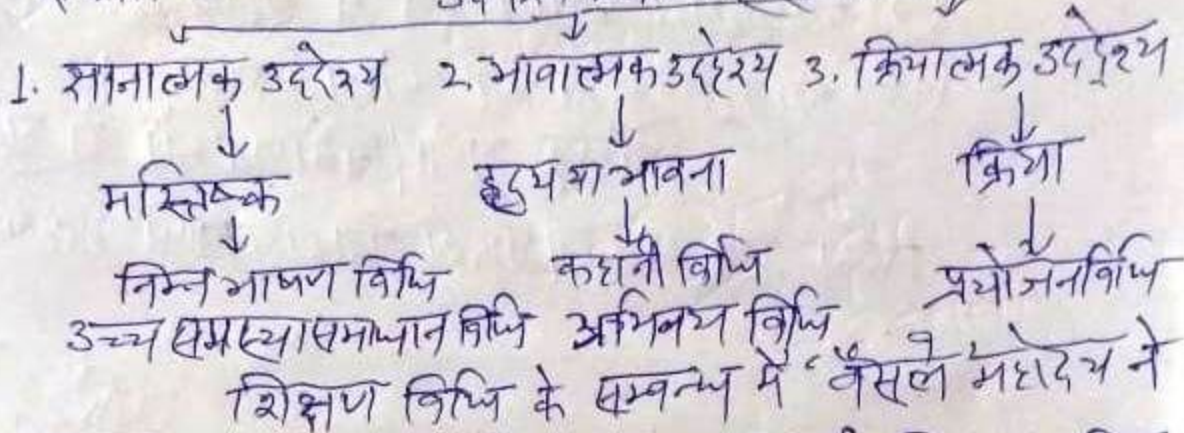 1. ज्ञानात्मक उद्देश्य 2. भावात्मक उद्देश्य 3. क्रियात्मक उद्देश्य
मस्तिष्क हृदय या भावना क्रिया
निम्न भाषण विधि कहानी विधि प्रयोजन विधि
उच्च समस्या समाधान विधि अभिनय विधि
शिक्षण विधि के सम्बन्ध में 'वैसले' महोदय ने